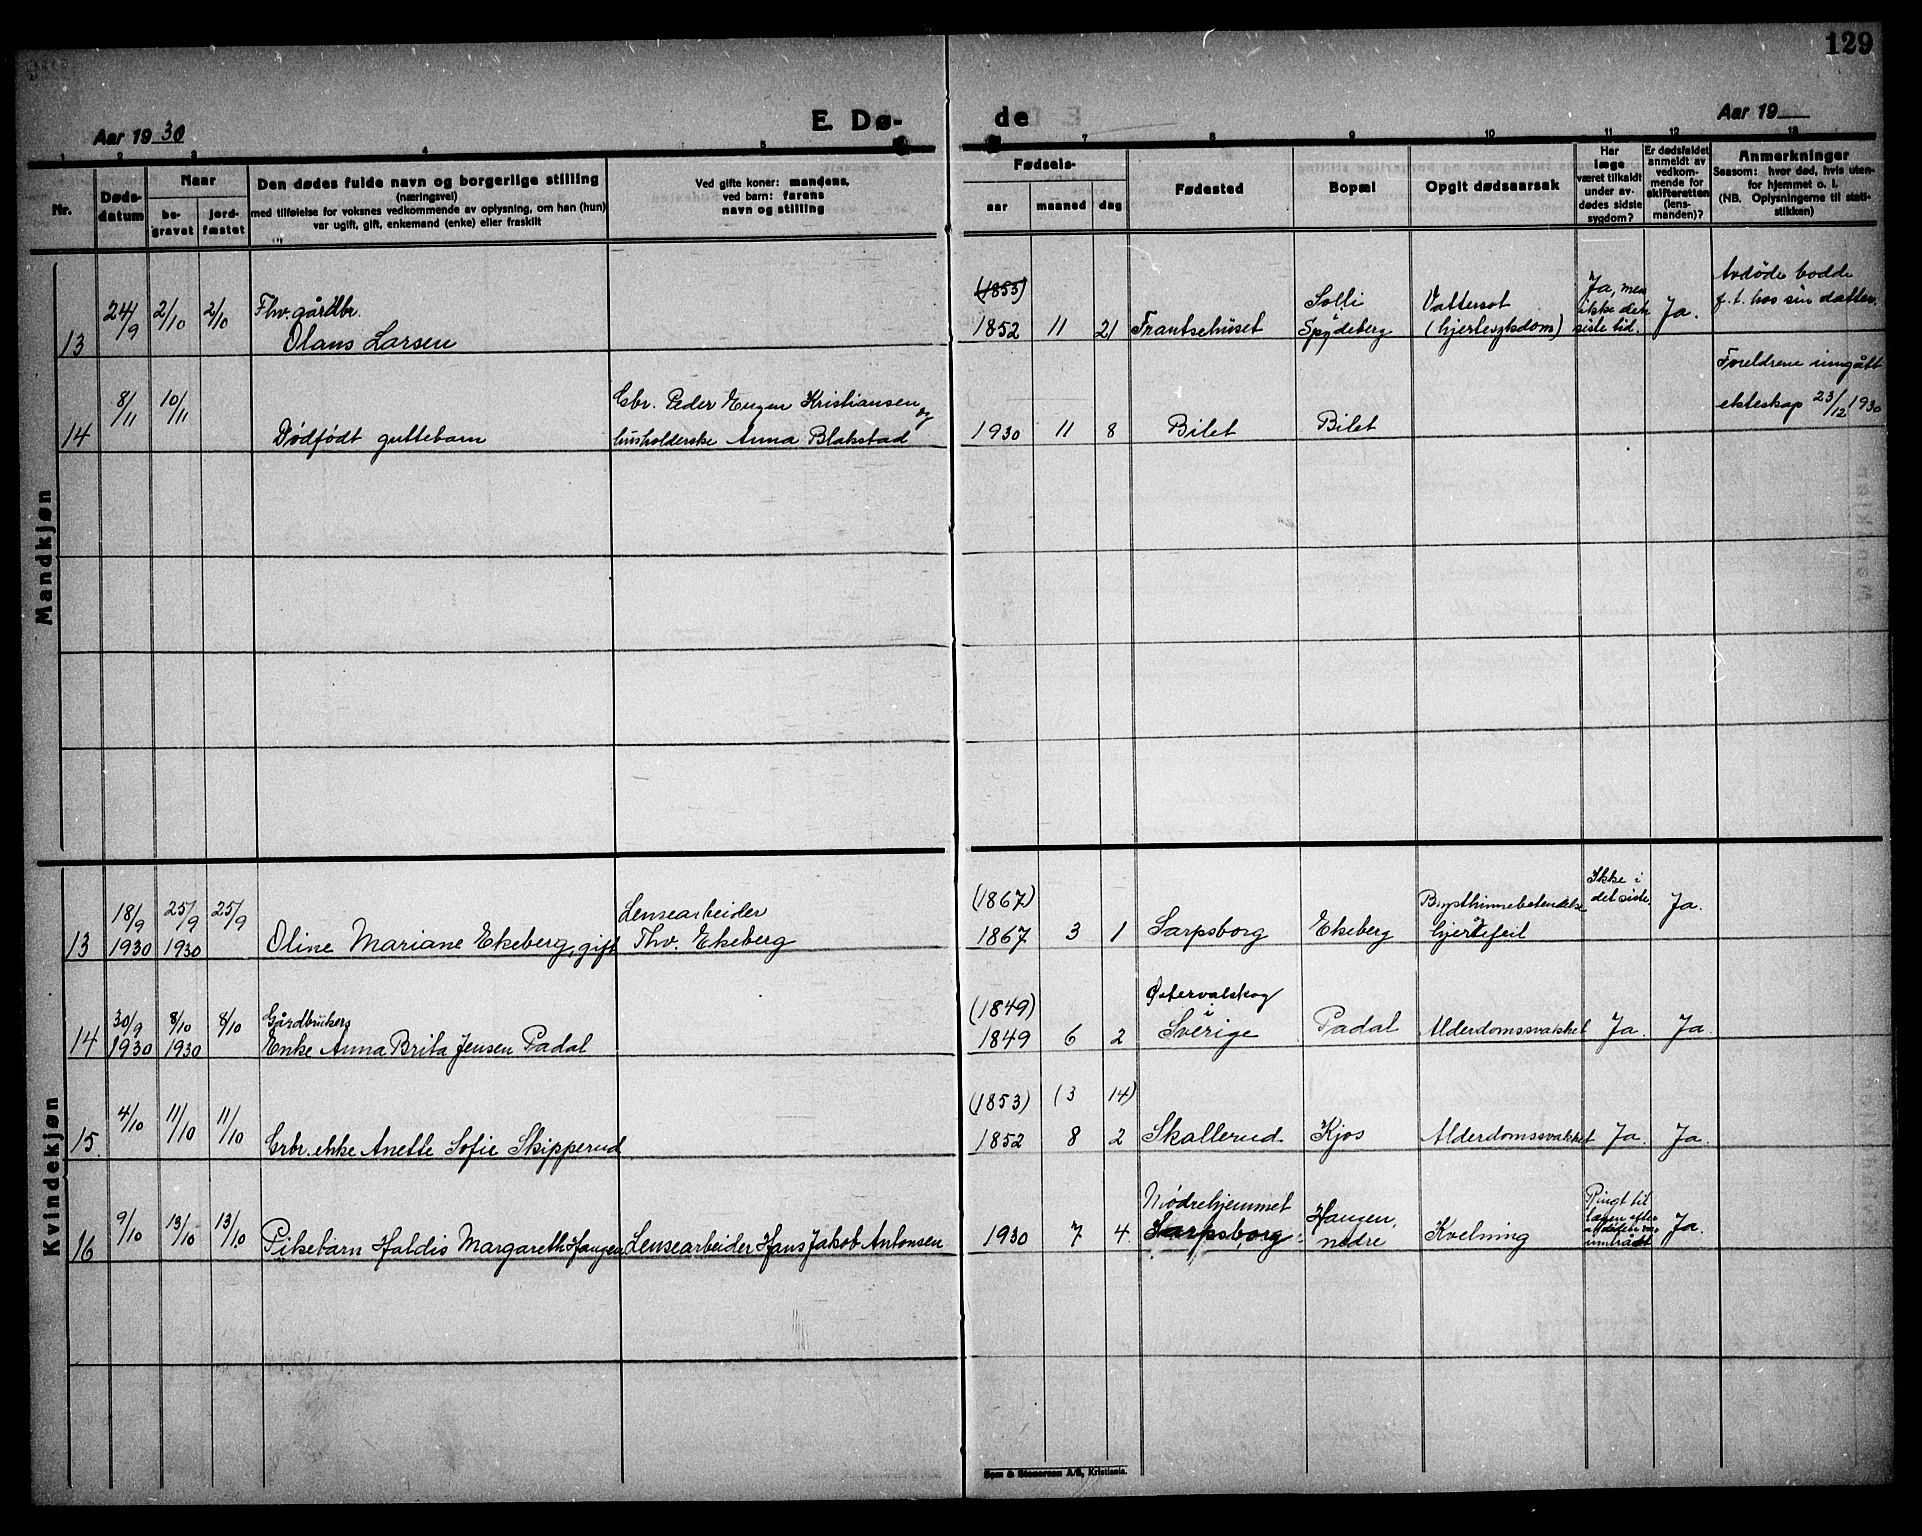 129
Aar 1930
E. Dø-
de
Aar 19
1 2 3 4 5
7 8 9 10 11 12 13
Nr.
Døds-
datum
Naar
be-
gravet
jord-
fæstet
Den dødes fulde navn og borgerlige stilling
(næringsvei)
med tilføielse for voksnes vedkommende av oplysning, om han (hun)
var ugift, gift, enkemand (enke) eller fraskilt
Ved gifte koner: mandens,
ved barn: farens
navn og stilling
Fødsels-
aar maaned dag
Fødested
Bopæl
Opgit dødsaarsak
Har
læge
været tilkaldt
under av-
dødes sidste
sygdom?
Er dødsfaldet
anmeldt av
vedkom-
mende for
skifteretten
(lens-
manden)?
Anmerkninger
Saasom: hvor død, hvis uten-
for hjemmet o. l.
(NB. Oplysningerne til stati-
stikken)
Mandkjøn
13 24/9 2/10 2/10 Fhv. gårdbr.
Olaus Larsen
(1853)
1852 11 21 Frantsehuset
Solli
i
Spydeberg
Vattersot
(hjertesykdom)
Ja, men
ikke det
siste tid.
Ja.
Avdøde bodde
f. t. hos sin datter.
14 8/11 10/11
Dødfødt guttebarn
Gbr. Peder Eugen Kristiansen og
husholderske Anna Blakstad
1930 11 8 Bilet Bilet
Foreldrene inngått
ekteskap 23/12 1930
Kvindekjøn
13 18/9 1930 25/9 1930 25/9
Oline Mariane Ekeberg, gift
Lensearbeider
Thv. Ekeberg
(1867)
1867 3 1 Sarpsborg Ekeberg
Brysthinnebetendelse
hjertefeil
Ikke i
det siste
Ja.
14 30/9 1930 8/10 1930 8/10
Gårdbrukers
Enke Anna Brita Jensen Padal
(1849)
1849 6 2
Østervalskog
i
Sverige
Padal Alderdomssvakhet Ja. Ja.
15. 4/10 11/10 11/10
Grbr. enke Anette Sofie Skipperud
(1853) (3 14)
1852 8 2 Skallerud Kjos Alderdomssvakhet Ja. Ja.
16 9/10 13/10 13/10
Pikebarn Haldis Margareth Haugen
Lensearbeider Hans Jakob Antonsen
1930 7 4
Mødrehjemmet
Sarpsborg
Haugen,
nedre
Kvelning
Ringt til
lægen efter
at døden var
inntrådt
Ja.
Sem & Stenersen A/S, Kristiania.